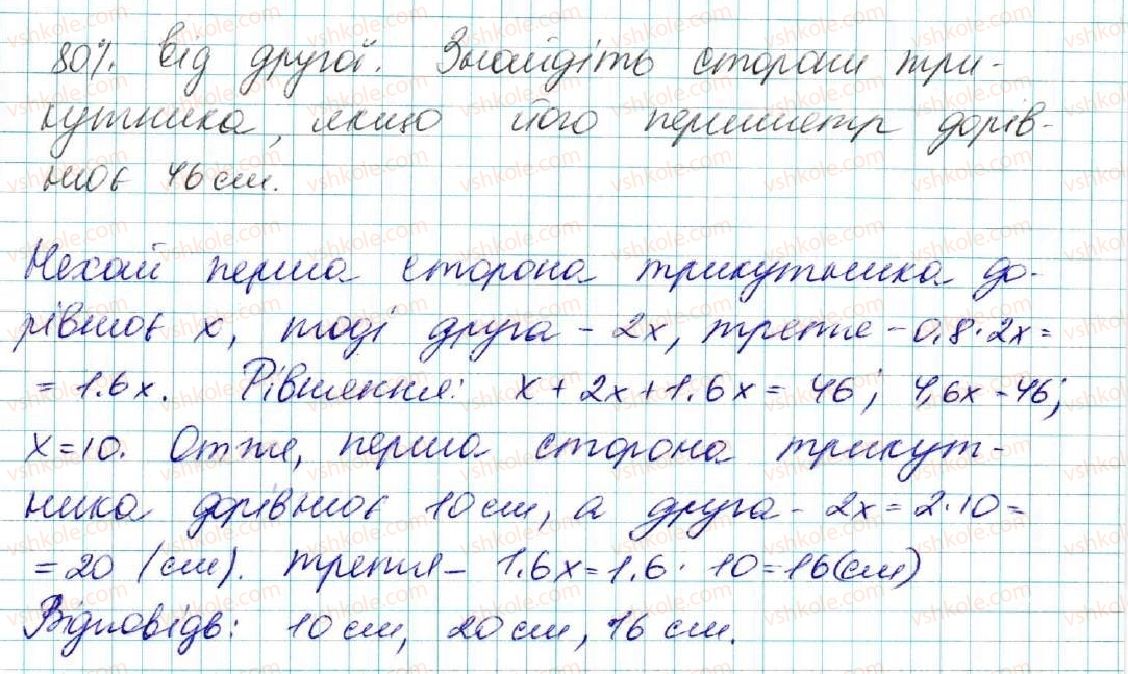 80% від другої. Знайдіть сторони три-
кутника, якщо його периметр дорів-
нює 46 см.
Нехай перша сторона трикутника до-
рівнює x, тоді друга - 2x, третя - 0,8·2x=
= 1.6x. Рівняння: x+2x+1.6x = 46; 4,6x = 46;
x=10. Отже, перша сторона трикут-
ника дорівнює 10 см, а друга - 2x = 2·10 =
= 20 (см). третя - 1.6x=1.6·10=16(см)
Відповідь: 10 см, 20 см, 16 см.